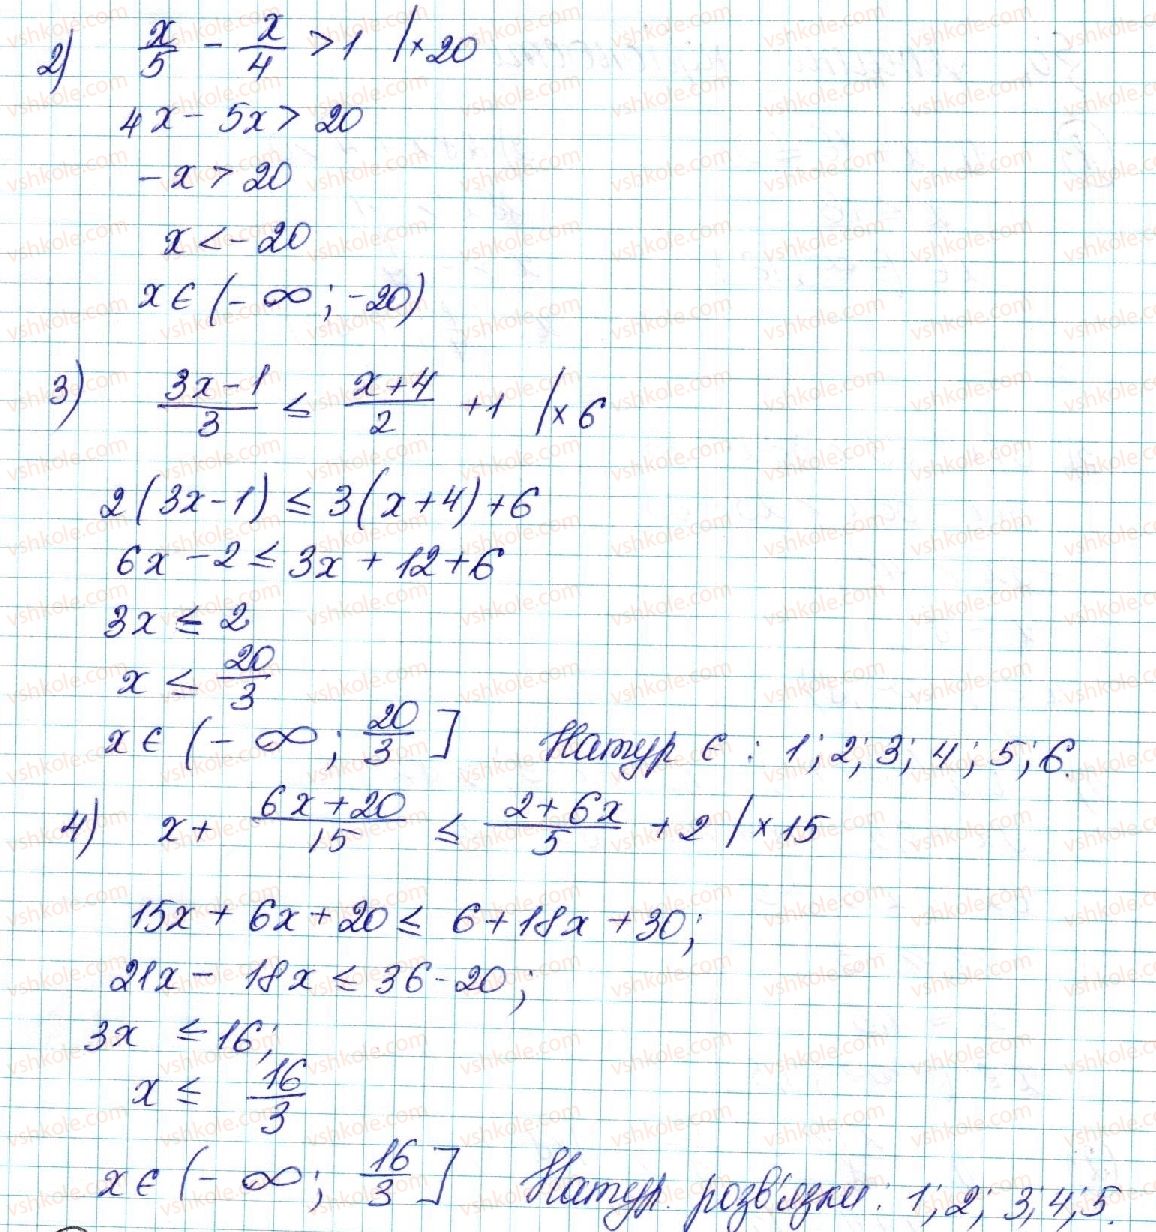 2) x/5 - x/4 > 1 |×20
4x - 5x > 20
-x > 20
x < -20
x ∈ (-∞; -20)
3) (3x-1)/3 ≤ (x+4)/2 + 1 |×6
2(3x-1) ≤ 3(x+4)+6
6x - 2 ≤ 3x + 12 + 6
3x ≤ 2
x ≤ 20/3
x ∈ (-∞; 20/3] Натур є: 1; 2; 3; 4; 5; 6.
4) x + (6x+20)/15 ≤ (2+6x)/5 + 2 |×15
15x + 6x + 20 ≤ 6 + 18x + 30;
21x - 18x ≤ 36 - 20;
3x ≤ 16;
x ≤ 16/3
x ∈ (-∞; 16/3] Натур. розв'язки: 1; 2; 3; 4; 5.
vshkole.com